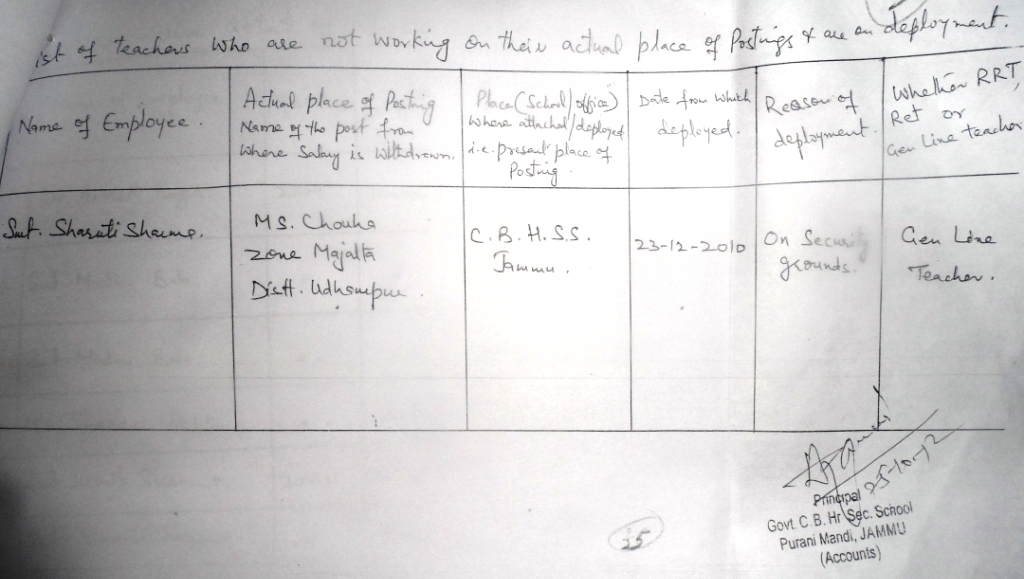 ist of teachers who are not working on their actual place of Postings & are on deployment.
Name of Employee.
Actual place of Posting
Name of the post from
where Salary is withdrawn.
Place (School/office)
where attached/deployed
i.e. present place of
Posting.
Date from which
deployed.
Reason of
deployment.
Whether RRT,
Ret or
Gen Line teacher
Smt. Sharuti Sharma.
M S. Chouka
zone Majalta
Distt. Udhampur.
C. B. H. S.S.
Jammu.
23-12-2010
On Security
grounds.
Gen Line
Teacher.
25-10-12
Principal
Govt. C. B. Hr. Sec. School
Purani Mandi, JAMMU
(Accounts)
35